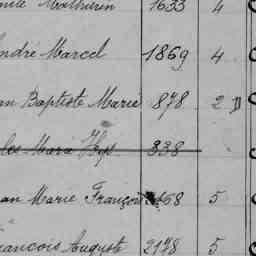 Mathurin 1633 4
André Marcel 1869 4
an Baptiste Marie 878 2 D
les Mara 338
an Marie François 168 5
rancois Auguste 2178 5